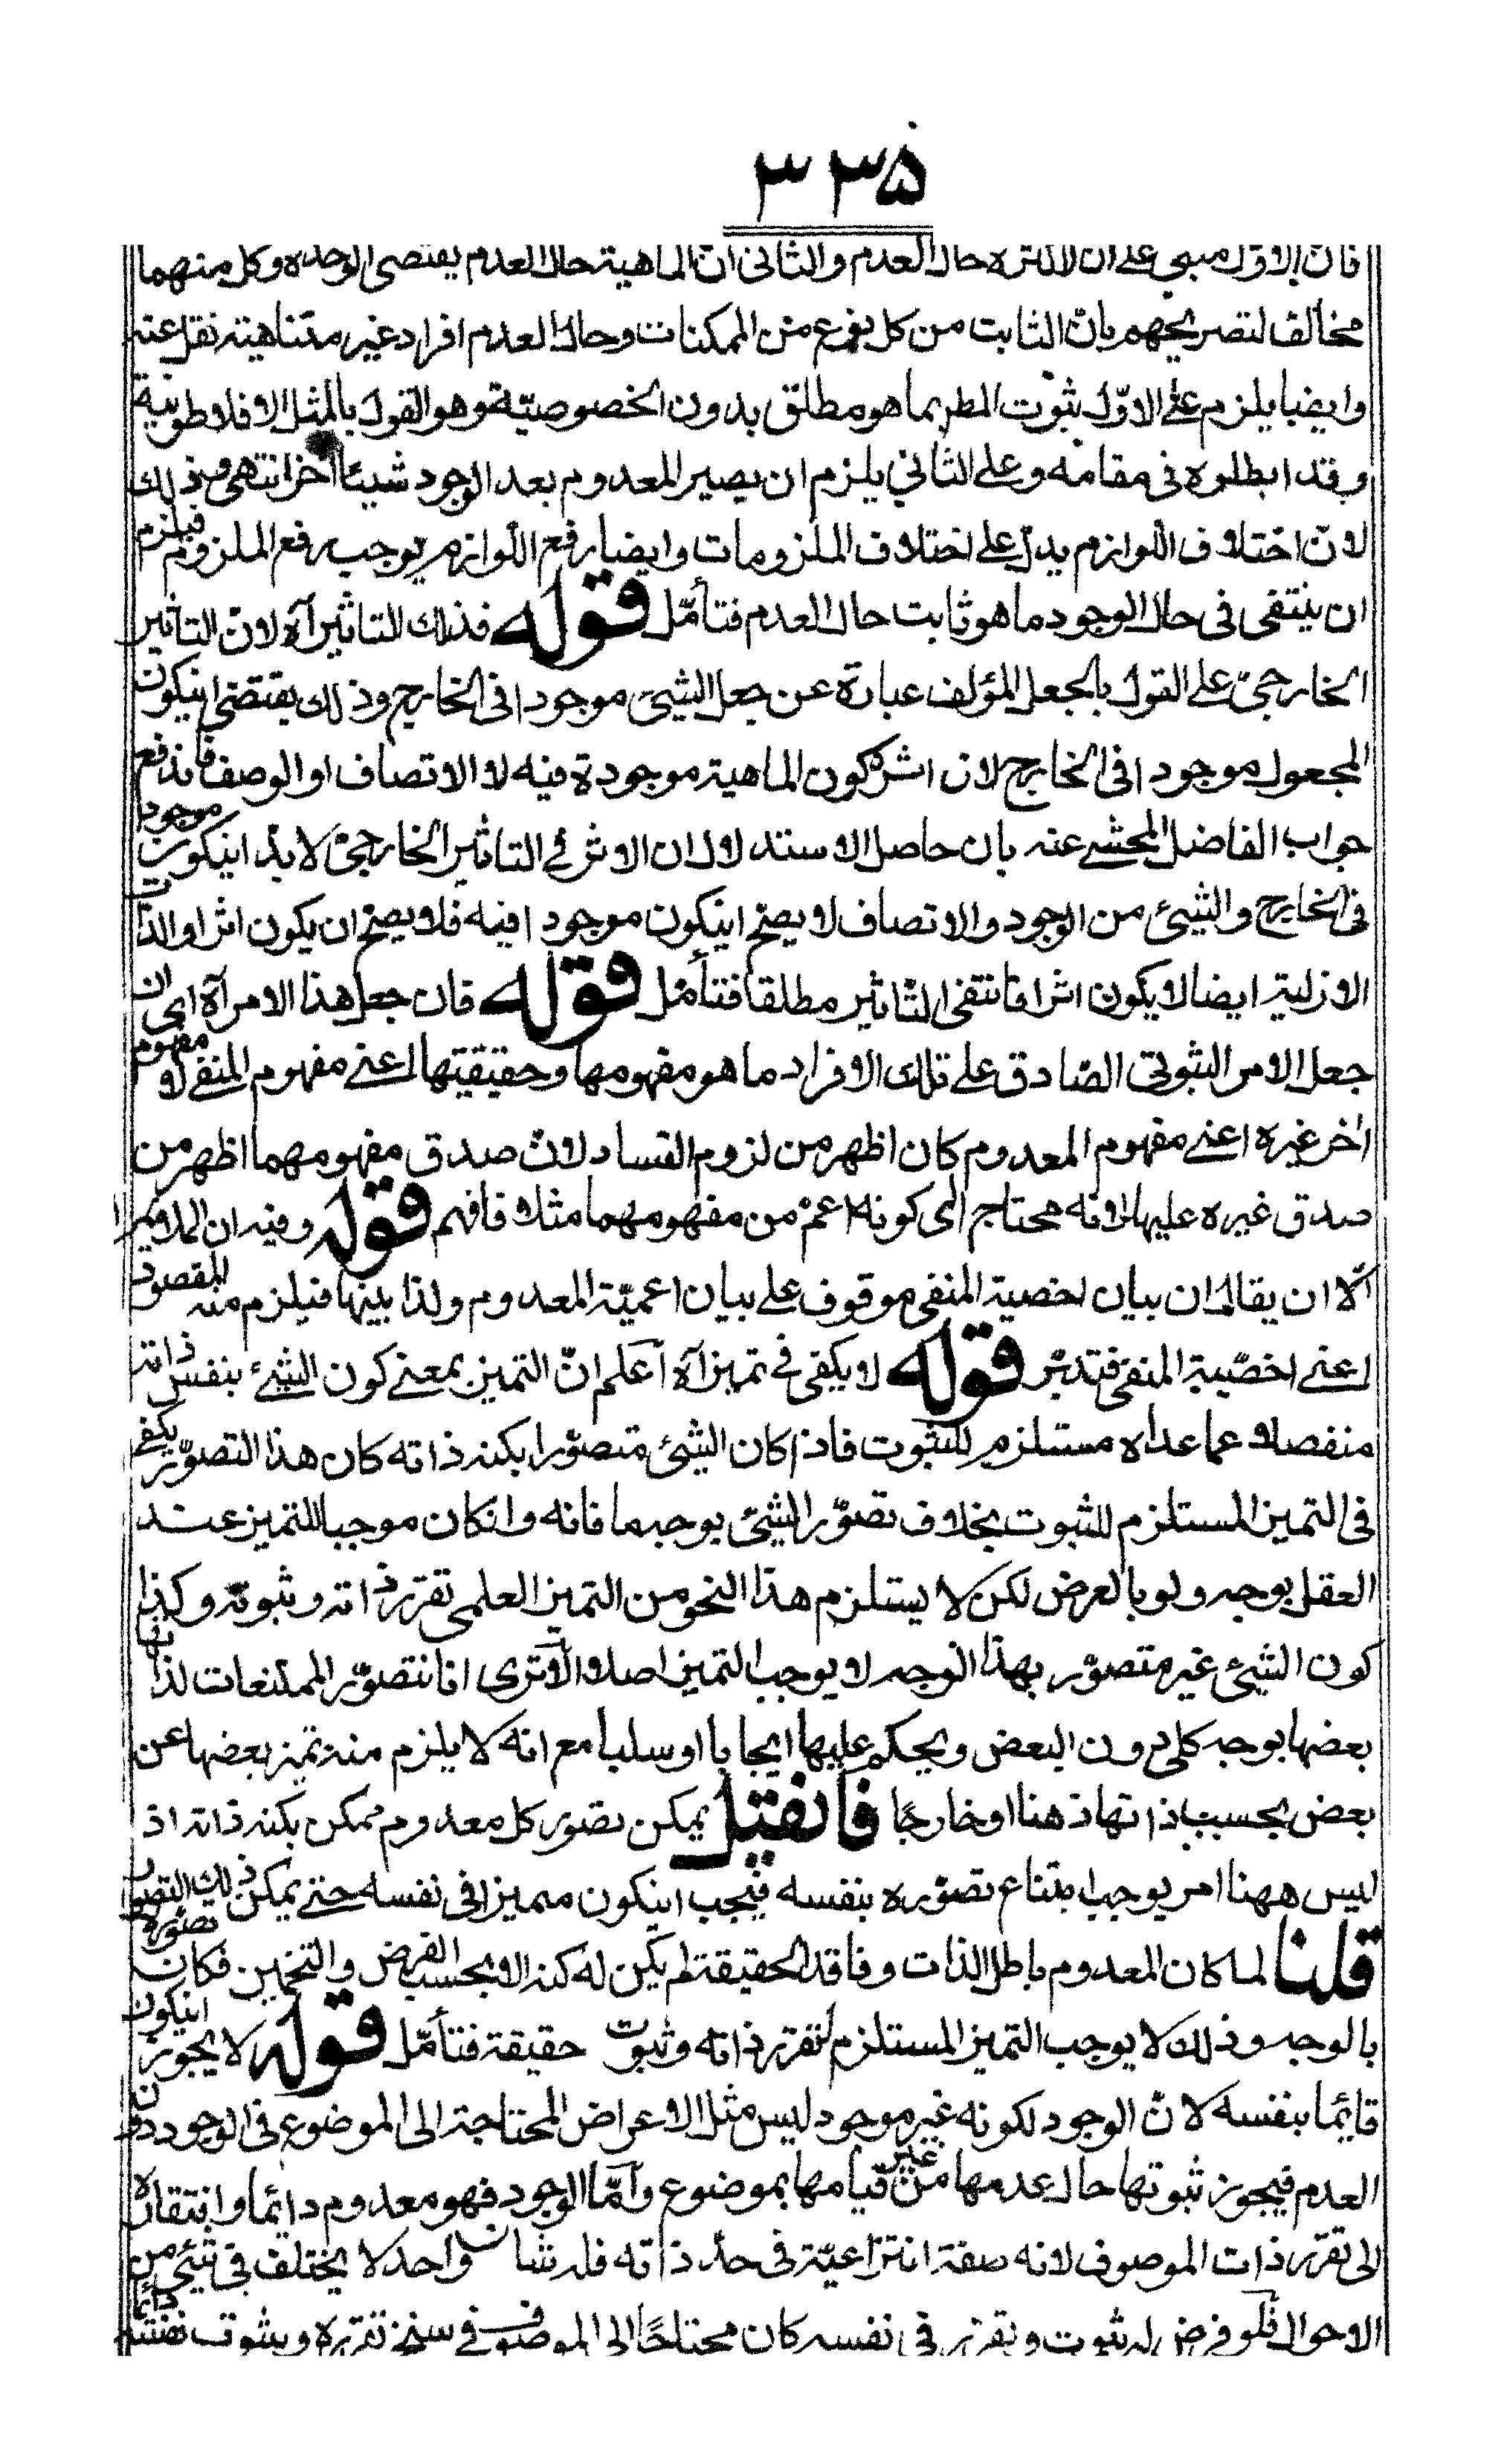 ٣٣۵
فان الاوّل مبنى على ان لا كثرة حال العدم والثانى انّ الماهية حال العدم يقتضى الوحدة وكل منهما
مخالف لتصريحهم بانّ الثابت من كل نوع من الممكنات وحال العدم افراد غير متناهية نقل عنه
وايضا يلزم على الاوّل ثبوت المطر بما هو مطلق بدون الخصوصيّة وهو القول بالمثل الافلاطونية
وقد ابطلوه فى مقامه وعلى الثاني يلزم ان يصير المعدوم بعد الوجود شيئا اخر انتهى وذلك
لانّ اختلاف اللوازم يدلّ على اختلاف الملزومات وايضا رفع اللوازم يوجب رفع الملزوم فيلزم
ان ينتفى فى حال الوجود ما هو ثابت حال العدم فتأمّل قوله فذلك للتاثير آه لانّ التاثير
الخارجىّ على القول بالجعل المؤلف عبارة عن جعل الشيئ موجودا فى الخارج وذلك يقتضى اينكون
المجعول موجودا فى الخارج لان اثره كون الماهية موجودة فيه لا الاتصاف او الوصف فاندفع
جواب الفاضل المحشے عنه بان حاصل الاستدلال ان الاثر في التاثير الخارجىّ لا بدّ اينكون موجودا
فى الخارج والشيئ من الوجود والاتصاف لا يصحّ اينكون موجودا فيه فلا يصحّ ان يكون اثرا والذات
الازلية ايضا لا يكون اثرا فانتفى التّاثير مطلقا فتأمّل قوله فان جعل هذا الامر آه اى ان
جعل الامر الثبوتى الصّادق على تلك الافراد ما هو مفهومها وحقيقتها اعنے مفهوم المنفے لا مفهوم
اخر غيره اعنے مفهوم المعدوم كان اظهر من لزوم الفساد لانّ صدق مفهومهما اظهر من
صدق غيره عليها لانه محتاج الى كونه اعمّ من مفهومهما مثلا فافهم قوله وفيه ان المذكور
الّا ان يقال ان بيان اخصية المنفى موقوف على بيان اعميّة المعدوم ولذا بينها فيلزم منه المقصود
اعنے اخصّية المنفى فتدبّر قوله لا يكفى في تميز آه اعلم انّ التميز بمعنے كون الشيئ بنفس ذاته
منفصلا عما عداه مستلزم للثبوت فاذا كان الشيئ متصوّرا بكنه ذاته كان هذا التصوّر يكفے
فى التميز المستلزم للثبوت بخلاف تصوّر الشيئ بوجه ما فانه وانكان موجبا للتميز عند
العقل بوجه ولو بالعرض لكن لا يستلزم هذا النحو من التميز العلمى تقرّر ذاته وثبوته وكذا
كون الشيئ غير متصوّر بهذا الوجه لا يوجب التميز اصلا الا ترى انا نتصوّر الممتنعات لذاتها
بعضها بوجه كلى دون البعض ويحكم عليها ايجابا او سلبا مع انه لا يلزم منه تميز بعضها عن
بعض بحسب ذاتها ذهنا او خارجًا فان قيل يمكن تصوّر كل معدوم ممكن بكنه ذاته اذ
ليس ههنا امر يوجب امتناع تصوّره بنفسه فيجب اينكون متميزا فى نفسه حتے يمكن ذلك التصوّر
قلنا لما كان المعدوم باطل الذات وفاقد الحقيقة لم يكن له كنه الا بحسب الفرض والتخمين فكان تصوّره
بالوجه وذلك لا يوجب التميز المستلزم لتقرّر ذاته وثبوت حقيقة فتأمّل قوله لا يجوز اينكون
قايما بنفسه لانّ الوجود لكونه غير موجود ليس مثل الاعراض المحتاجة الى الموضوع فى الوجود دون
العدم فيجوز ثبوتها حال عدمها من غير قيامها بموضوع وامّا الوجود فهو معدوم دائما وافتقاره
الى تقرّر ذات الموصوف لانه صفة انتزاعيّة فى حدّ ذاته فله شان واحد لا يختلف فى شيئ من
الاحوال فلو فرض له ثبوت وتقرّر فى نفسه كان محتاجًا الى الموصوف في سنخ تقرّره وثبوت نفسه دائما